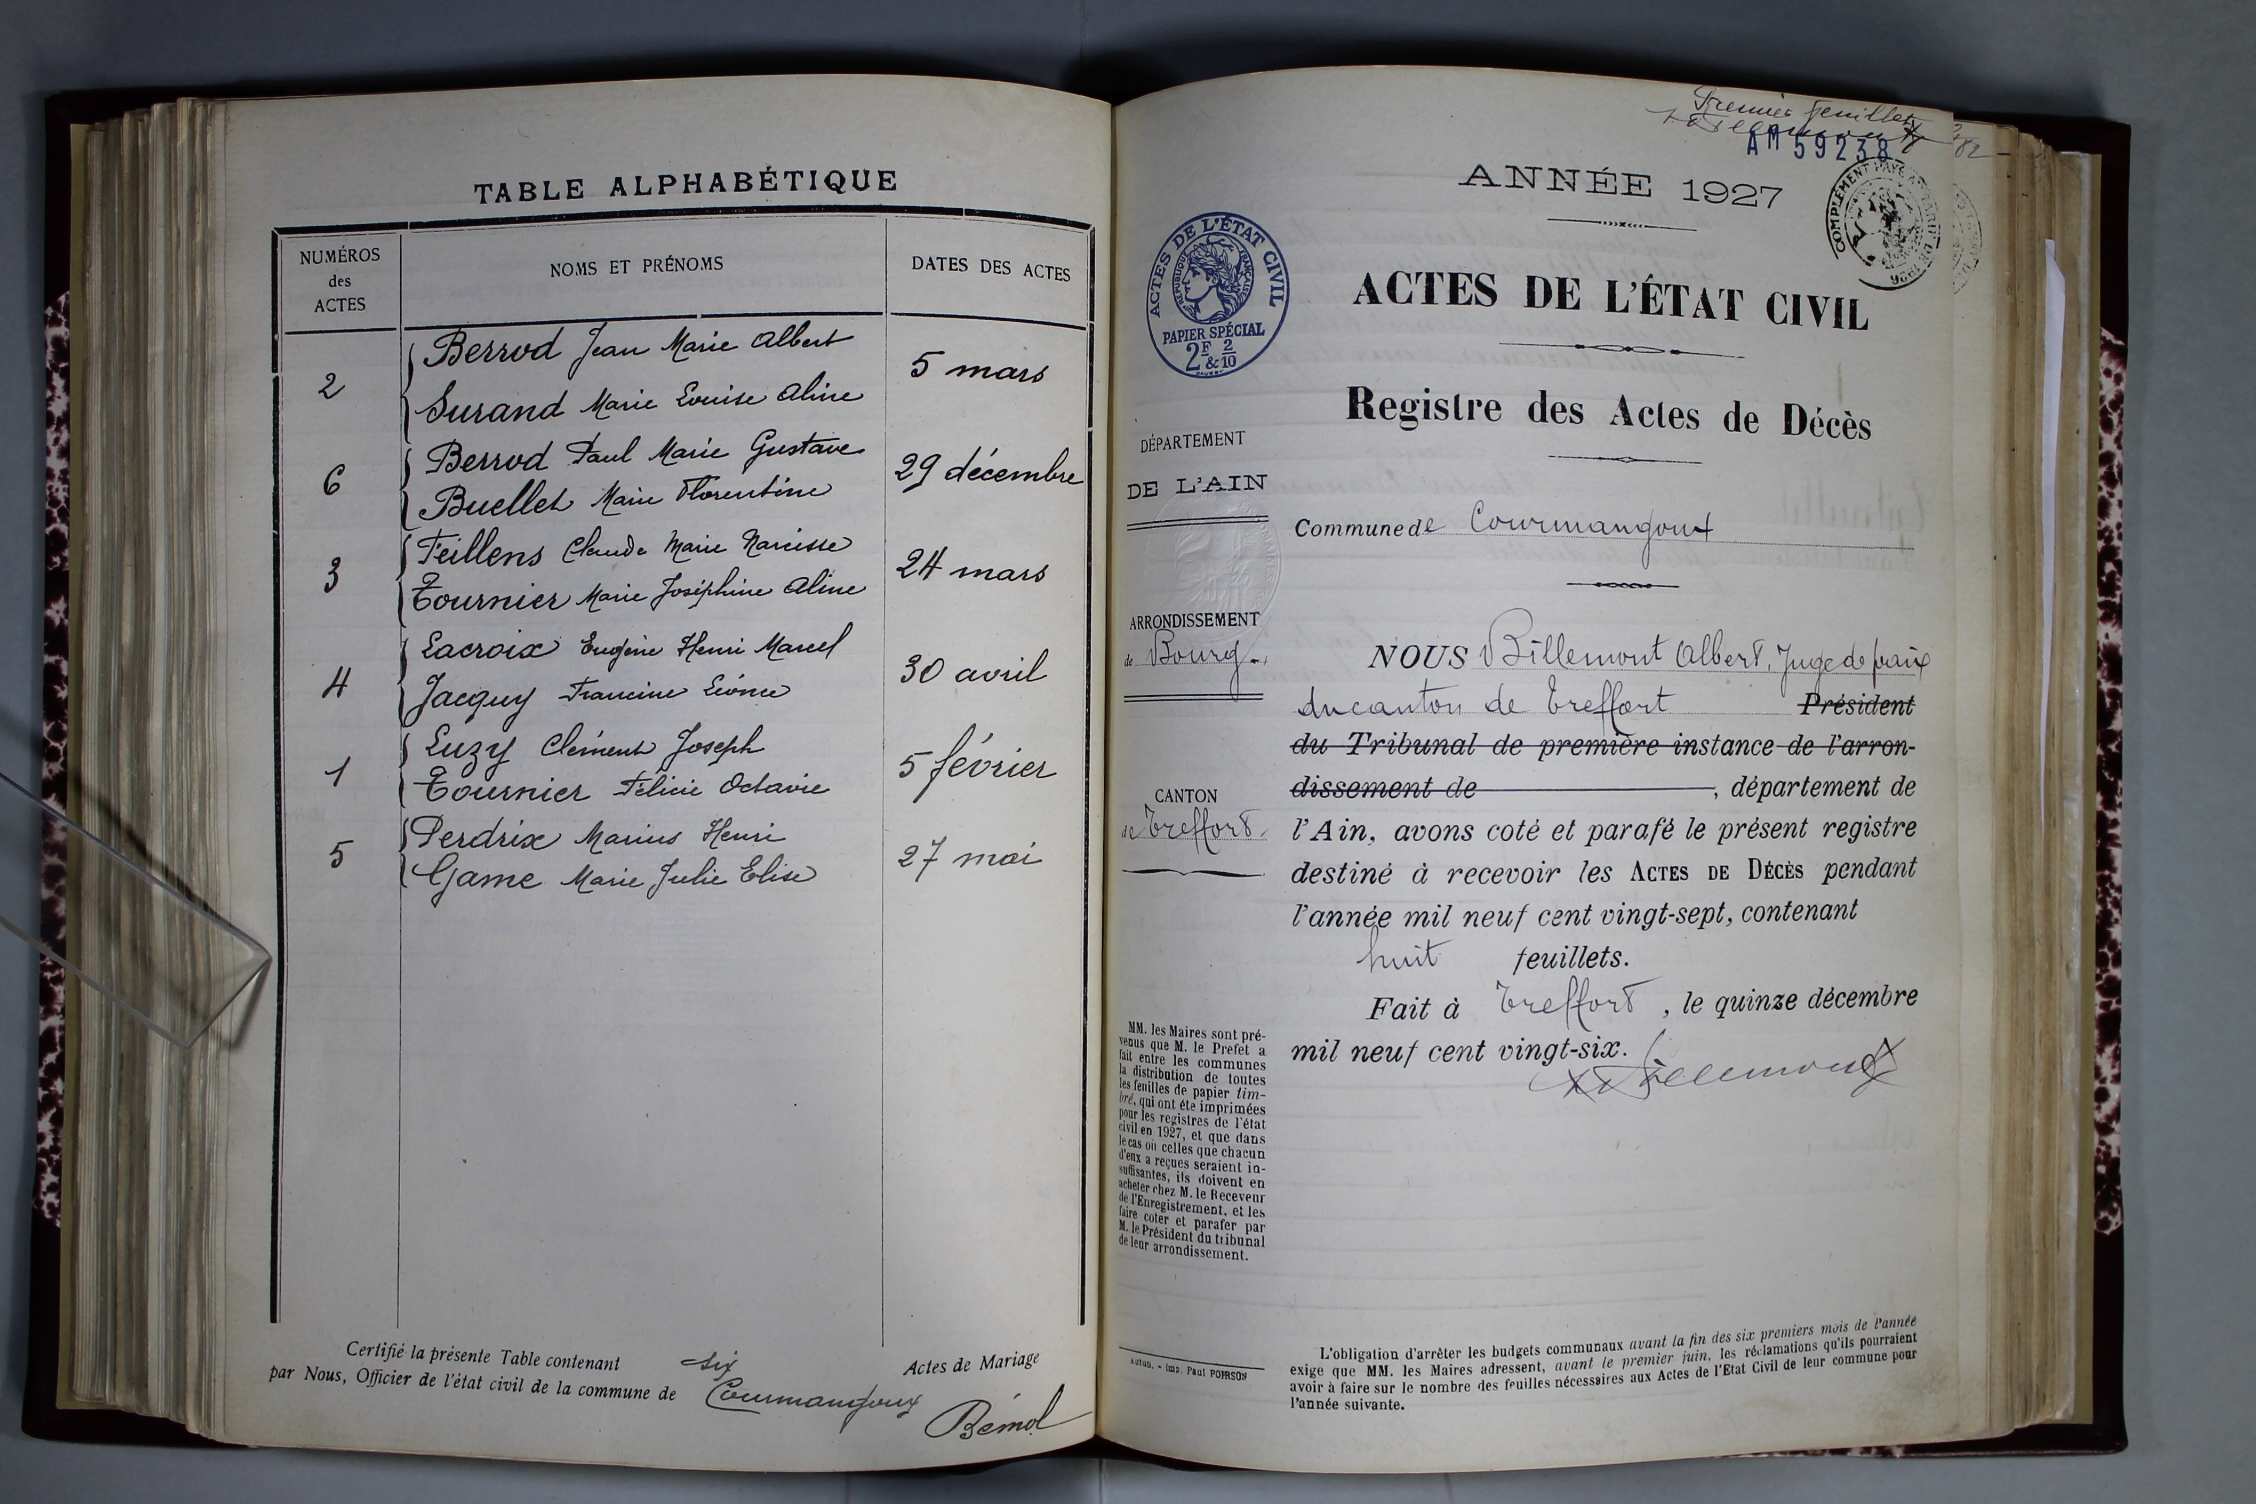 TABLE ALPHABÉTIQUE
NUMÉROS
des
ACTES
NOMS ET PRÉNOMS
DATES DES ACTES
2
Berrod Jean Marie Albert
Surand Marie Louise Aline
5 mars
6
Berrod Paul Marie Gustave
Buellet Marie Florentine
29 décembre
3
Feillens Claude Marie Narcisse
Tournier Marie Joséphine Aline
24 mars
4
Lacroix Eugène Henri Marcel
Jacquy Francine Léonce
30 avril
1
Luzy Clément Joseph
Tournier Félicie Octavie
5 février
5
Perdrix Marius Henri
Game Marie Julie Elise
27 mai
Certifié la présente Table contenant six Actes de Mariage
par Nous, Officier de l'état civil de la commune de Courmangoux
Bémol
Premier feuillet
AM 59238
COMPLÉMENT PAYÉ
ANNÉE 1927
ACTES DE L'ÉTAT CIVIL
RÉPUBLIQUE FRANÇAISE
PAPIER SPÉCIAL
2F & 2/10
ACTES DE L'ÉTAT CIVIL
Registre des Actes de Décès
DÉPARTEMENT
DE L'AIN
Commune de Courmangoux
ARRONDISSEMENT
de Bourg
CANTON
de Treffort
NOUS Billemont Albert, Juge de paix
du canton de Treffort Président
du Tribunal de première instance de l'arron-
dissement de , département de
l'Ain, avons coté et parafé le présent registre
destiné à recevoir les ACTES DE DÉCÈS pendant
l'année mil neuf cent vingt-sept, contenant
huit feuillets.
Fait à Treffort, le quinze décembre
mil neuf cent vingt-six.
Billemont
MM. les Maires sont pré-
venus que M. le Préfet a
fait entre les communes
la distribution de toutes
les feuilles de papier tim-
bré, qui ont été imprimées
pour les registres de l'état
civil en 1927, et que dans
le cas où celles que chacun
d'eux a reçues seraient in-
suffisantes, ils doivent en
acheter chez M. le Receveur
de l'Enregistrement, et les
faire coter et parafer par
M. le Président du tribunal
de leur arrondissement.
Autun. - Imp. Paul POIRSON
L'obligation d'arrêter les budgets communaux avant la fin des six premiers mois de l'année
exige que MM. les Maires adressent, avant le premier juin, les réclamations qu'ils pourraient
avoir à faire sur le nombre des feuilles nécessaires aux Actes de l'Etat Civil de leur commune pour
l'année suivante.